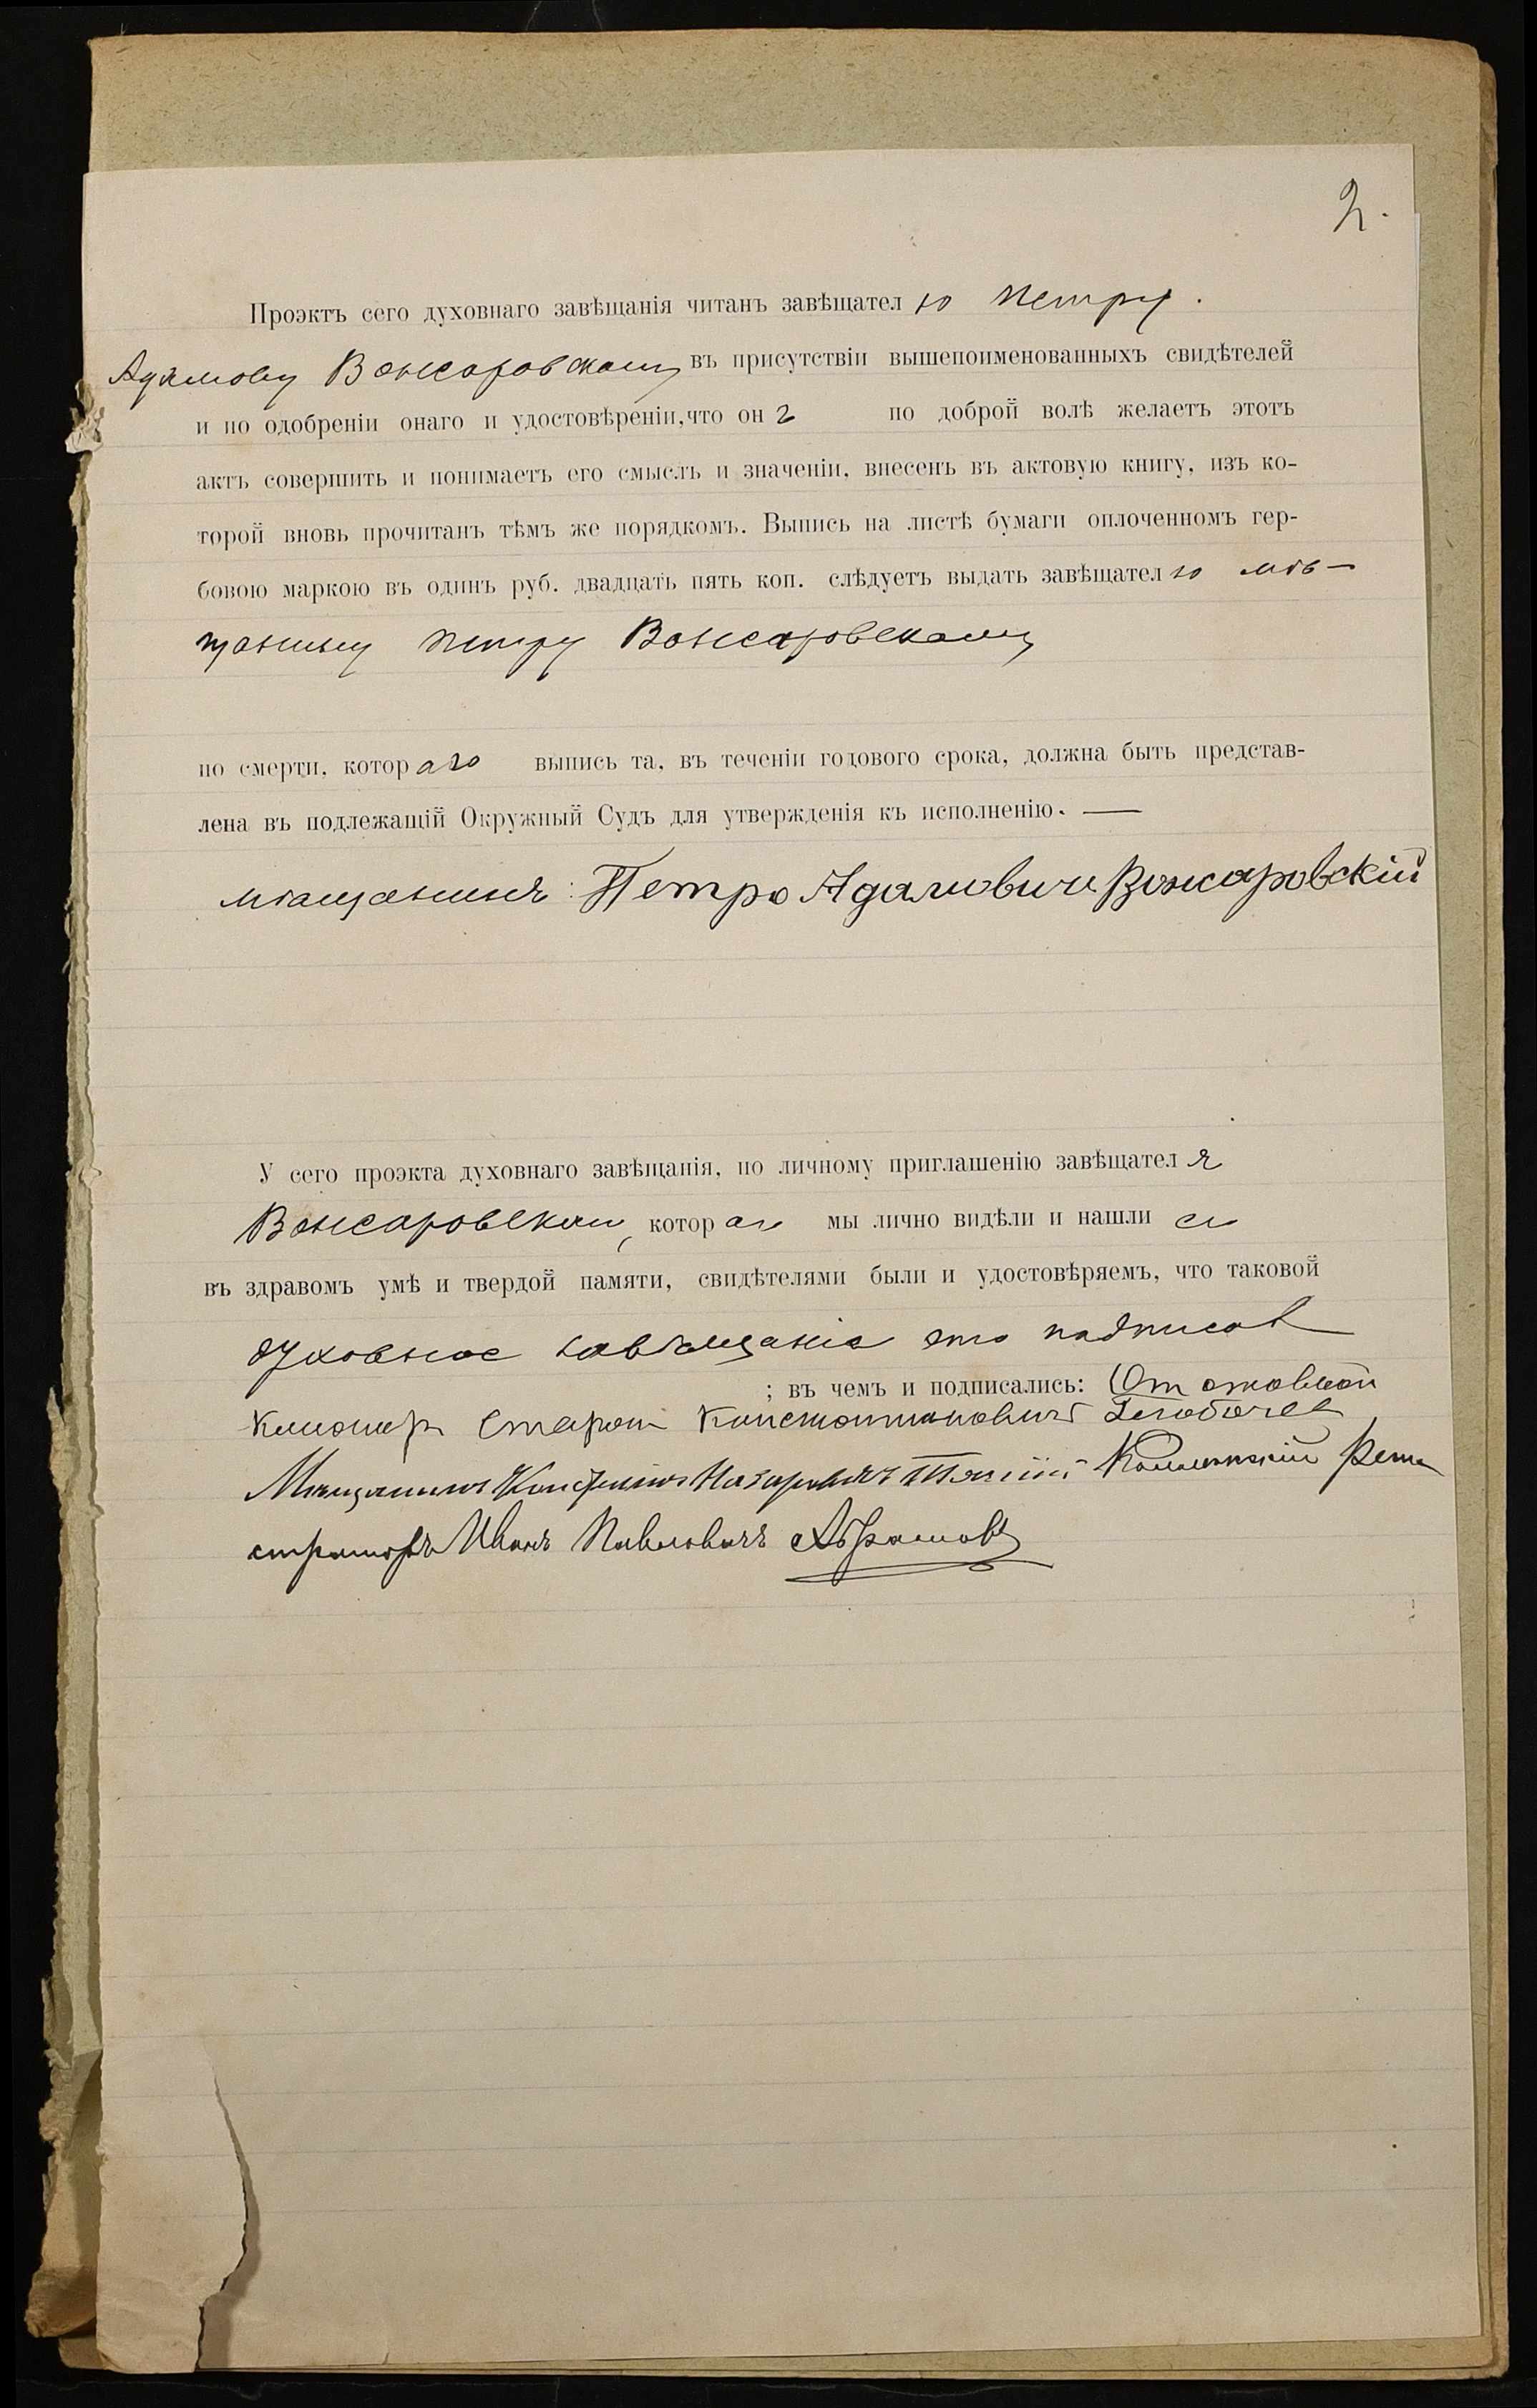 2.
Проэктъ сего духовнаго завѣщанія читанъ завѣщателю Петру
Адамову Вожаровскому въ присутствіи вышепоименованныхъ свидѣтелей
и по одобреніи онаго и удостовѣреніи, что онъ по доброй волѣ желаетъ этотъ
актъ совершить и понимаетъ его смыслъ и значеніи, внесенъ въ актовую книгу, изъ ко-
торой вновь прочитанъ тѣмъ же порядкомъ. Выпись на листѣ бумаги оплоченномъ гер-
бовою маркою въ одинъ руб. двадцать пять коп. слѣдуетъ выдать завѣщателю мѣ-
щанину Петру Вожаровскому
по смерти, котораго выпись та, въ теченіи годового срока, должна быть представ-
лена въ подлежащій Окружный Судъ для утвержденія къ исполненію. —
мѣщанинъ: Петро Адамовичъ Вожаровскій
У сего проэкта духовнаго завѣщанія, по личному приглашенію завѣщателя
Вожаровскаго, котораго мы лично видѣли и нашли его
въ здравомъ умѣ и твердой памяти, свидѣтелями были и удостовѣряемъ, что таковой
духовное завѣщаніе это подписалъ
; въ чемъ и подписались: Отставной
Константиновичъ
Мѣщанинъ Назаровичъ Реги
страторъ Иванъ Павловичъ Абрамовъ